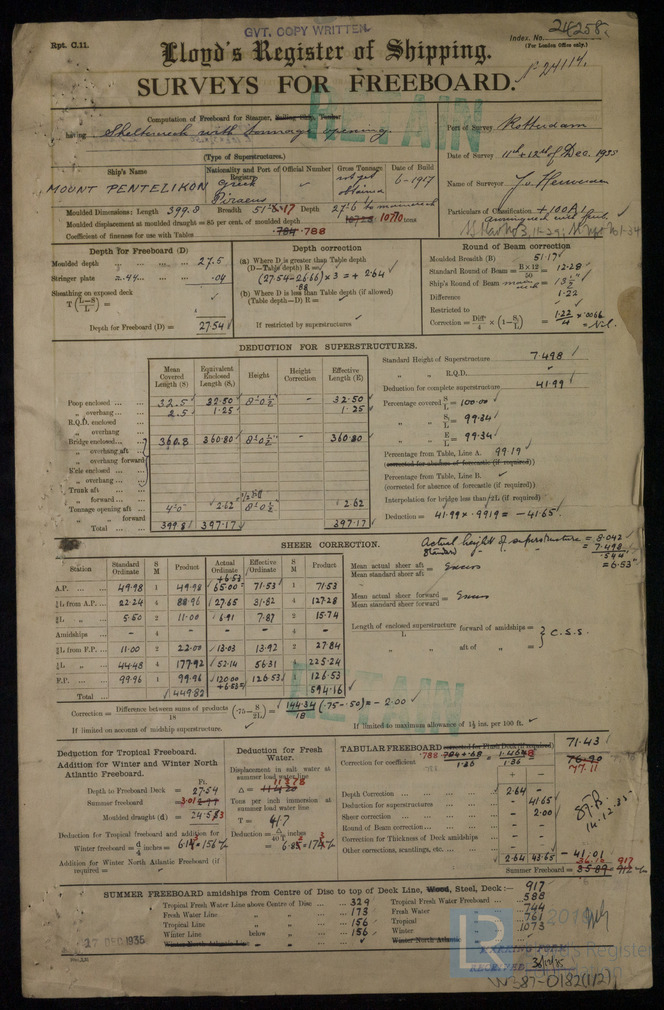 GVT. COPY WRITTEN.
Rpt. C.11.
Index. No. 24258.
(For London Office only.)
Lloyd's Register of Shipping.
P 24114.
SURVEYS FOR FREEBOARD.
RETAIN
Computation of Freeboard for Steamer, Sailing Ship, Tanker
having Shelterdeck with tonnage opening.
(Type of Superstructures.)
Port of Survey Rotterdam
Date of Survey 11th + 12th of Dec. 1935
Name of Surveyor
Particulars of Classification +100A1
Ship's Name
MOUNT PENTELIKON
Nationality and Port of Registry
Greek
Piraeus
Official Number
Gross Tonnage
not yet
Date of Build
6-1917
Moulded Dimensions: Length 399.8 Breadth 51.17 Depth 27.6
Moulded displacement at moulded draught = 85 per cent. of moulded depth 10770 tons
Coefficient of fineness for use with Tables .784 .788
Depth for Freeboard (D)
Moulded depth 27.5
Stringer plate 2.44 .04
Sheathing on exposed deck
T (L-S/L) =
Depth for Freeboard (D) = 27.54
Depth correction
(a) Where D is greater than Table depth
(D—Table depth) R =
(27.54-26.66) × 3 = + 2.64
.88
(b) Where D is less than Table depth (if allowed)
(Table depth—D) R =
If restricted by superstructures
Round of Beam correction
Moulded Breadth (B) 51.17
Standard Round of Beam = B×12/50 = 12.28
Ship's Round of Beam = 13½"
Difference 1.22
Restricted to
Correction = Diff/4 × (1-S₁/L) = 1.22/4 × .0066 = Nil.
DEDUCTION FOR SUPERSTRUCTURES.
Mean Covered Length (S) Equivalent Enclosed Length (S₁) Height Height Correction Effective Length (E)
Poop enclosed 32.5 32.50 8'0½" - 32.50
" overhang 2.5 1.25 1.25
R.Q.D. enclosed
" overhang
Bridge enclosed 360.8 360.80 8'0½" 360.80
" overhang aft
" overhang forward
F'cle enclosed
" overhang
Trunk aft
" forward
Tonnage opening aft 4'0" 2.62 8'0½" 2.62
" " forward
Total 399.8 397.17 397.17
Standard Height of Superstructure 7.498
" " R.Q.D.
Deduction for complete superstructure 41.99
Percentage covered S/L = 100.00
" " S₁/L = 99.34
" " E/L = 99.34
Percentage from Table, Line A. 99.19
(corrected for absence of forecastle (if required))
Percentage from Table, Line B.
(corrected for absence of forecastle (if required))
Interpolation for bridge less than ·2L (if required)
Deduction = 41.99 × .9919 = -41.65
SHEER CORRECTION.
Actual height of superstructure = 8.042
Standard " " = 7.498
.544
= 6.53"
Station Standard Ordinate S M Product Actual Ordinate Effective Ordinate S M Product
+6.53
A.P. 49.98 1 49.98 65.00 71.53 1 71.53
⅙L from A.P. 22.24 4 88.96 27.65 31.82 4 127.28
⅓L " 5.50 2 11.00 6.91 7.87 2 15.74
Amidships - 4 - - - 4 -
⅓L from F.P. 11.00 2 22.00 13.03 13.92 2 27.84
⅙L " 44.48 4 177.92 52.14 56.31 225.24
F.P. 99.96 1 99.96 120.00 126.53 126.53
+6.53
Total 449.82 594.16
Mean actual sheer aft
Mean standard sheer aft = Excess
Mean actual sheer forward
Mean standard sheer forward = Excess
Length of enclosed superstructure forward of amidships =
L
" " aft of " =
C.S.S.
Correction = Difference between sums of products/18 (·75-S/2L) = 144.34/18 (.75-.50) = - 2.00
If limited on account of midship superstructure.
If limited to maximum allowance of 1½ ins. per 100 ft.
RETAIN
Deduction for Tropical Freeboard.
Addition for Winter and Winter North Atlantic Freeboard.
Ft.
Depth to Freeboard Deck = 27.54
Summer freeboard = 3.01
Moulded draught (d) = 24.53
Deduction for Tropical freeboard and addition for
Winter freeboard = d/4 inches = 6.13" = 156 m/m
Addition for Winter North Atlantic Freeboard (if required) =
Deduction for Fresh Water.
Displacement in salt water at summer load water line
Δ = 11420
Tons per inch immersion at summer load water line
T = 41.7
Deduction = Δ/40T inches
TABULAR FREEBOARD corrected for Flush Deck (if required) 71.43
Correction for coefficient .788+.68/1.36 1.468/1.36 77.11
+ -
Depth Correction 2.64 -
Deduction for superstructures - 41.65
Sheer correction - 2.00
Round of Beam correction - -
Correction for Thickness of Deck amidships - -
Other corrections, scantlings, etc. - -
2.64 43.65 -41.01
36.10 917
Summer Freeboard = 35.89 = 912 m/m
SUMMER FREEBOARD amidships from Centre of Disc to top of Deck Line, Wood, Steel, Deck :— 917
Tropical Fresh Water Line above Centre of Disc 329
Fresh Water Line " " 173
Tropical Line " " 156
Winter Line below " 156
Winter North Atlantic Line "
Tropical Fresh Water Freeboard 588
Fresh Water " 744
Tropical " 761
Winter " 1073
Winter North Atlantic "
17 DEC 1935
RECEIVED
W387-0182(1/2)